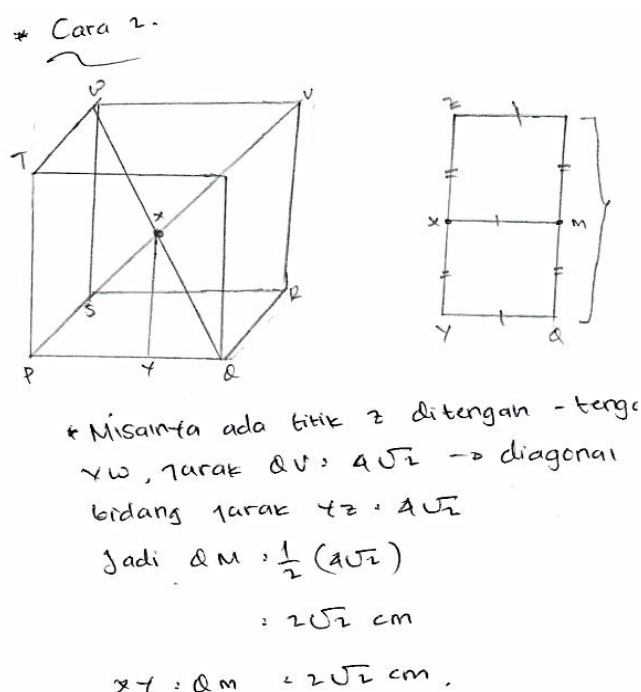 * Cara 2.
W
V
T
X
S
R
P
Y
Q
Z
X
M
Y
Q
* Misalnya ada titik Z ditengah - tenga
VW, jarak QV = 4√2 → diagonal
bidang jarak YZ = 4√2
Jadi QM = 1/2 (4√2)
= 2√2 cm
XY = QM = 2√2 cm.